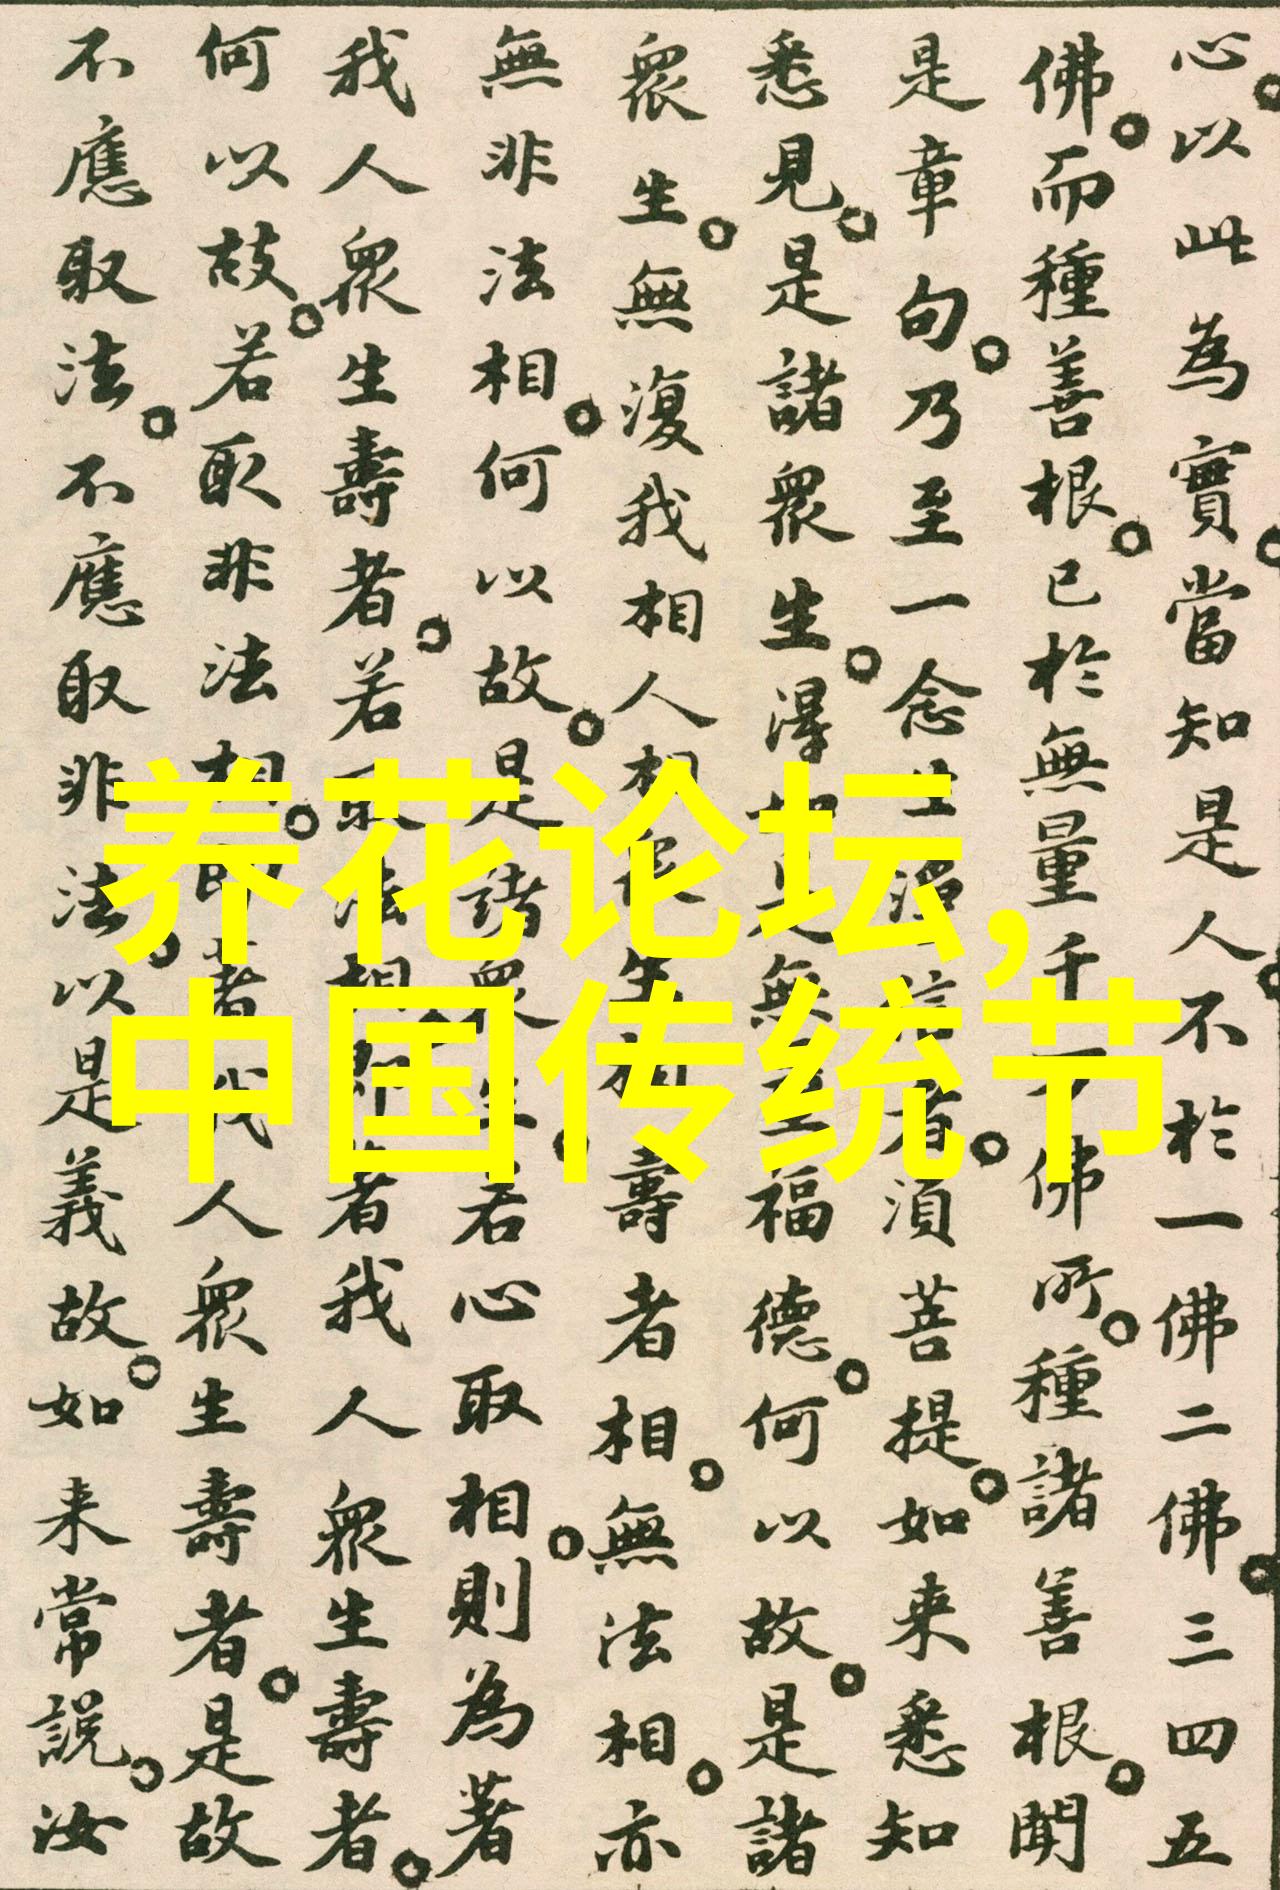 心以此為實當知是人不於一佛二佛三四五
佛而種善根已於無量千万佛所種諸善根聞
是章句乃至一念生淨信者須菩提如来悉知
悉見是諸眾生得如是無量福德何以故是諸
眾生無復我相人相眾生相壽者相無法相亦
無非法相何以故是諸眾生若心取相則為著
我人眾生壽者若取法相即著我人眾生壽者
何以故若取非法相即著我人眾生壽者是故
不應取法不應取非法以是義故如来常說汝
养花论坛,
中国传统节